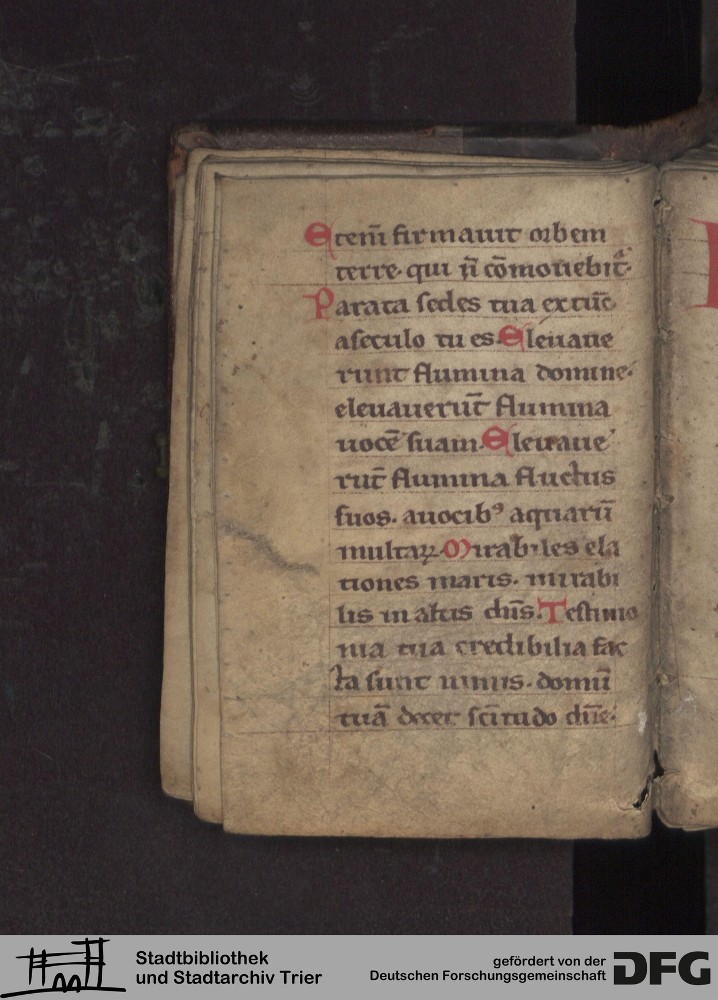 Etem̄ firmauit orbem
terre· qui n̄ cōmouebit᷑·
Parata sedes tua extūc
aseculo tu es· Eleuaue
runt flumina domine·
eleuauerūt flumina
uocē suam· Eleuaue
rūt flumina fluctus
suos· auocibꝰ aquarū
multaꝝ· Mirabiles ela
tiones maris· mirabi
lis in altis dn̄s· Testimo
nia tua credibilia fac
ta sunt nimis· domū
tuā decet sc̄itudo dn̄e·
Stadtbibliothek
und Stadtarchiv Trier
gefördert von der
Deutschen Forschungsgemeinschaft
DFG